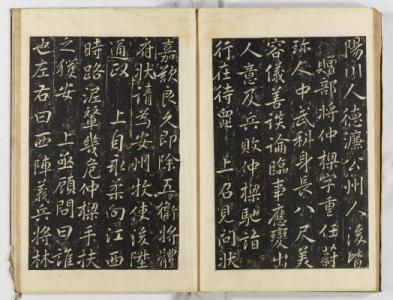 陽川人德濂公州人後皆
贈部將仲樑字重任蔚
珍人中武科身長八尺美
容儀善談論臨事應變出
人意及兵敗仲樑馳詣
行在待辠 上召見問狀
嘉歎良久即除五衛將體
府狀請爲安州牧使後陞
通政 上自永柔向江西
時路輦幾危仲樑手扶
之獲安 上亟顧問曰誰
也左右曰西陣義兵將林